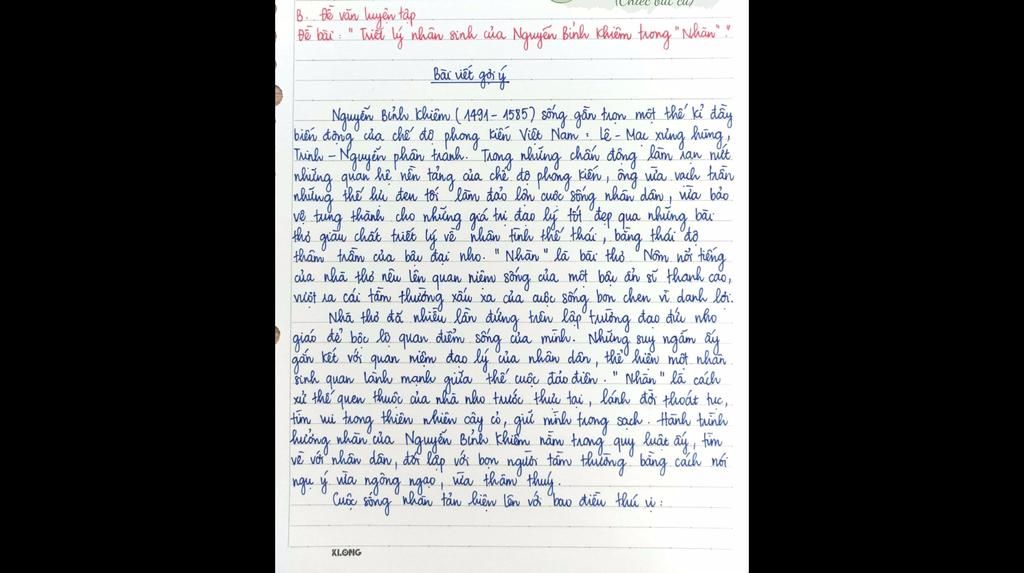 (Chiếc bút cừ)
B. Đề văn luyện tập
Đề bài: "Triết lý nhân sinh của Nguyễn Bỉnh Khiêm trong "Nhàn"."
Bài viết gợi ý
Nguyễn Bỉnh Khiêm (1491 - 1585) sống gần trọn một thế kỉ đầy
biến động của chế độ phong kiến Việt Nam: Lê - Mạc xưng hùng,
Trịnh - Nguyễn phân tranh. Trong những chấn động làm rạn nứt
những quan hệ nền tảng của chế độ phong kiến, ông vừa vạch trần
những thế lực đen tối làm đảo lộn cuộc sống nhân dân, vừa bảo
vệ trung thành cho những giá trị đạo lý tốt đẹp qua những bài
thơ giàu chất triết lý về nhân tình thế thái, bằng thái độ
thâm trầm của bậc đại nho. "Nhàn" là bài thơ Nôm nổi tiếng
của nhà thơ nêu lên quan niệm sống của một bậc ẩn sĩ thanh cao,
vượt ra cái tầm thường xấu xa của cuộc sống bon chen vì danh lợi.
Nhà thơ đã nhiều lần đứng trên lập trường đạo đức nho
giáo để bộc lộ quan điểm sống của mình. Những suy ngẫm ấy
gắn kết với quan niệm đạo lý của nhân dân, thể hiện một nhân
sinh quan lành mạnh giữa thế cuộc đảo điên. "Nhàn" là cách
xử thế quen thuộc của nhà nho trước thực tại, lánh đời thoát tục,
tìm vui trong thiên nhiên cây cỏ, giữ mình trong sạch. Hành trình
hưởng nhàn của Nguyễn Bỉnh Khiêm nằm trong quy luật ấy, tìm
về với nhân dân, đối lập với bọn người tầm thường bằng cách nói
ngụ ý vừa ngông ngạo, vừa thâm thuý.
Cuộc sống nhàn tản hiện lên với bao điều thú vị:
KLONG